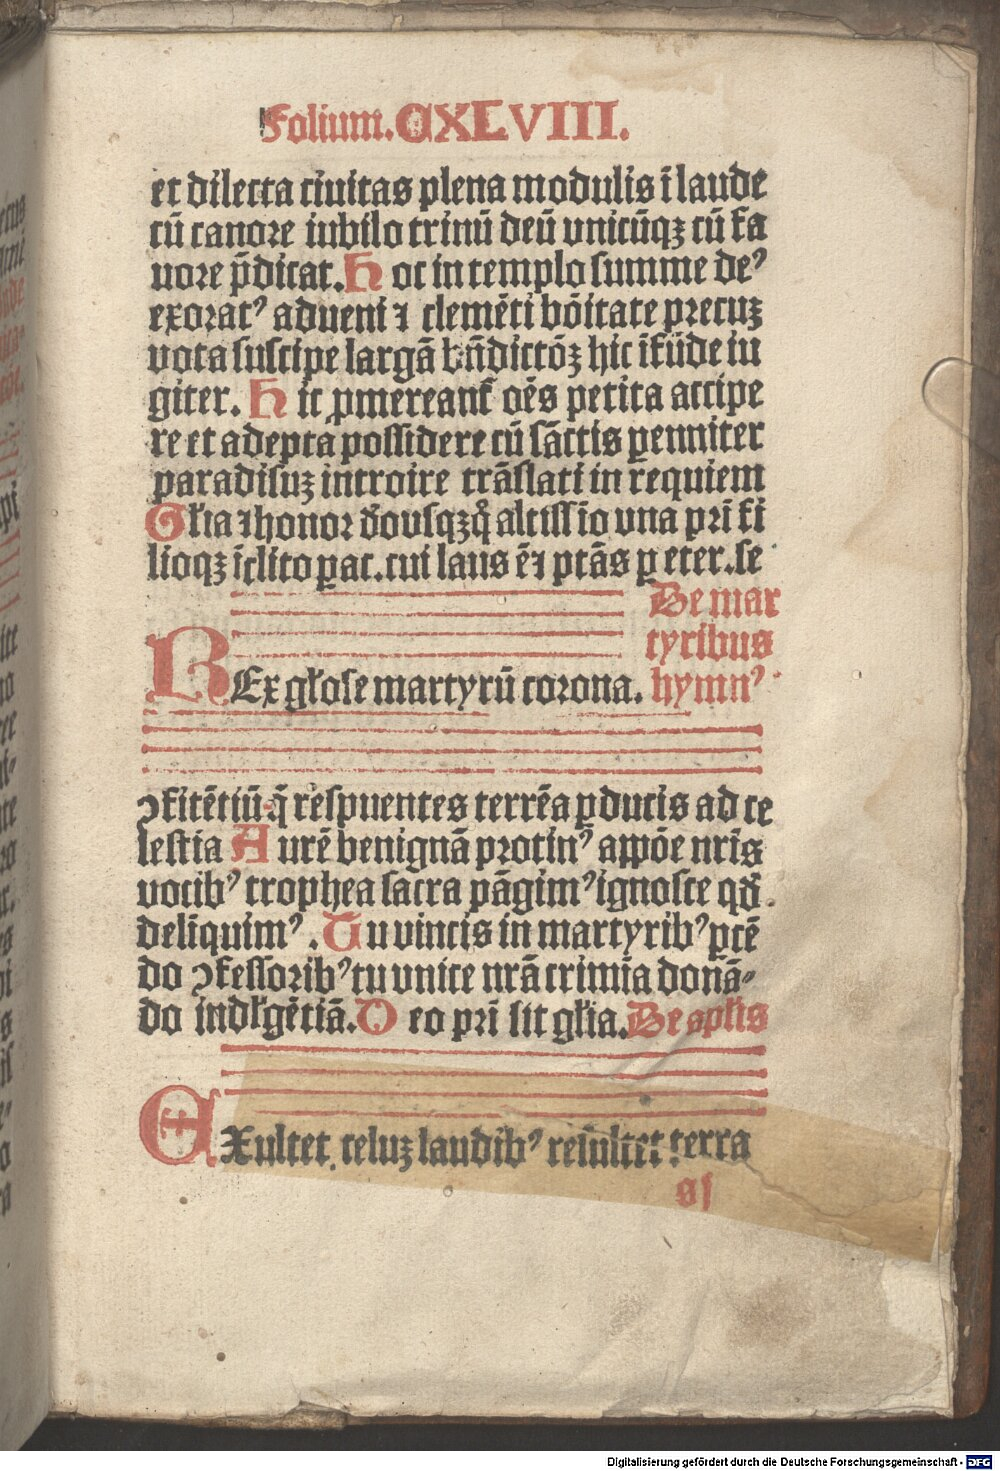 Folium. CXLVIII.
et dilecta ciuitas plena modulis ī laude
cū canore iubilo trinū deū vnicūqꝫ cū fa
uore p̄dicat. Hoc in templo summe de⁹
exorat⁹ adueni ⁊ clemēti bōitate precuꝫ
vota suscipe largā bn̄dictōꝫ hic īfūde iu
giter. Hic ꝓmereant᷑ oēs petita accipe
re et adepta possidere cū sāctis ꝑenniter
paradisuꝫ introire trāslati in requiem
Gl̓ia ⁊ honor d̓o vsqꝫq̊ altissīo vna pr̄i fi
lioqꝫ īclito ꝑac. cui laus ē ⁊ ptās ꝑ eter. se
De mar
tyribus
REx gl̓ose martyrū corona. hymn⁹
ꝯfitētiū q̄ respuentes terrēa ꝑducis ad ce
lestia Aurē benignā protin⁹ appōe nr̄is
vocib⁹ trophea sacra pāgim⁹ ignosce qd̓
deliquim⁹. Tu vincis in martyrib⁹ ꝑcē
do ꝯfessorib⁹ tu vince nr̄a crimīa donā⸗
do indl̓gētiā. Deo pr̄i sit gl̓ia. De apl̓is
EXultet celuꝫ laudib⁹ resultet terra
s j
Digitalisierung gefördert durch die Deutsche Forschungsgemeinschaft - DFG